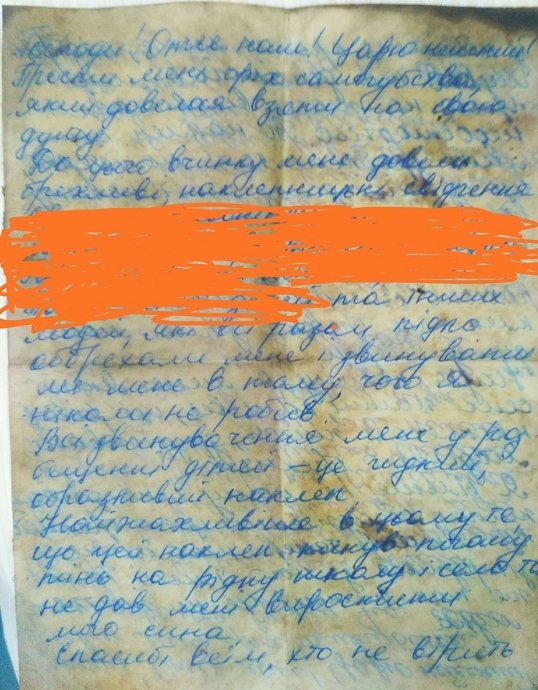 Господи! Отче наш! Царю небесний!
Прости мені гріх самогубства
який довелося взяти на свою
душу
До цього вчинку мене довели
брехливі, наклепницькі свідчення
та інших
людей, які разом підло
оббрехали мене і звинуватили
мене в тому, чого я
ніколи не робив,
Всі звинувачення мене у роз
бещенні дітей – це гидкий,
образливий наклеп
Найжахливіше в цьому те
що цей наклеп кинув пляму
тінь на рідну школу і село та
не дав мені виростити
мого сина
Спасибі всім, хто не вірить